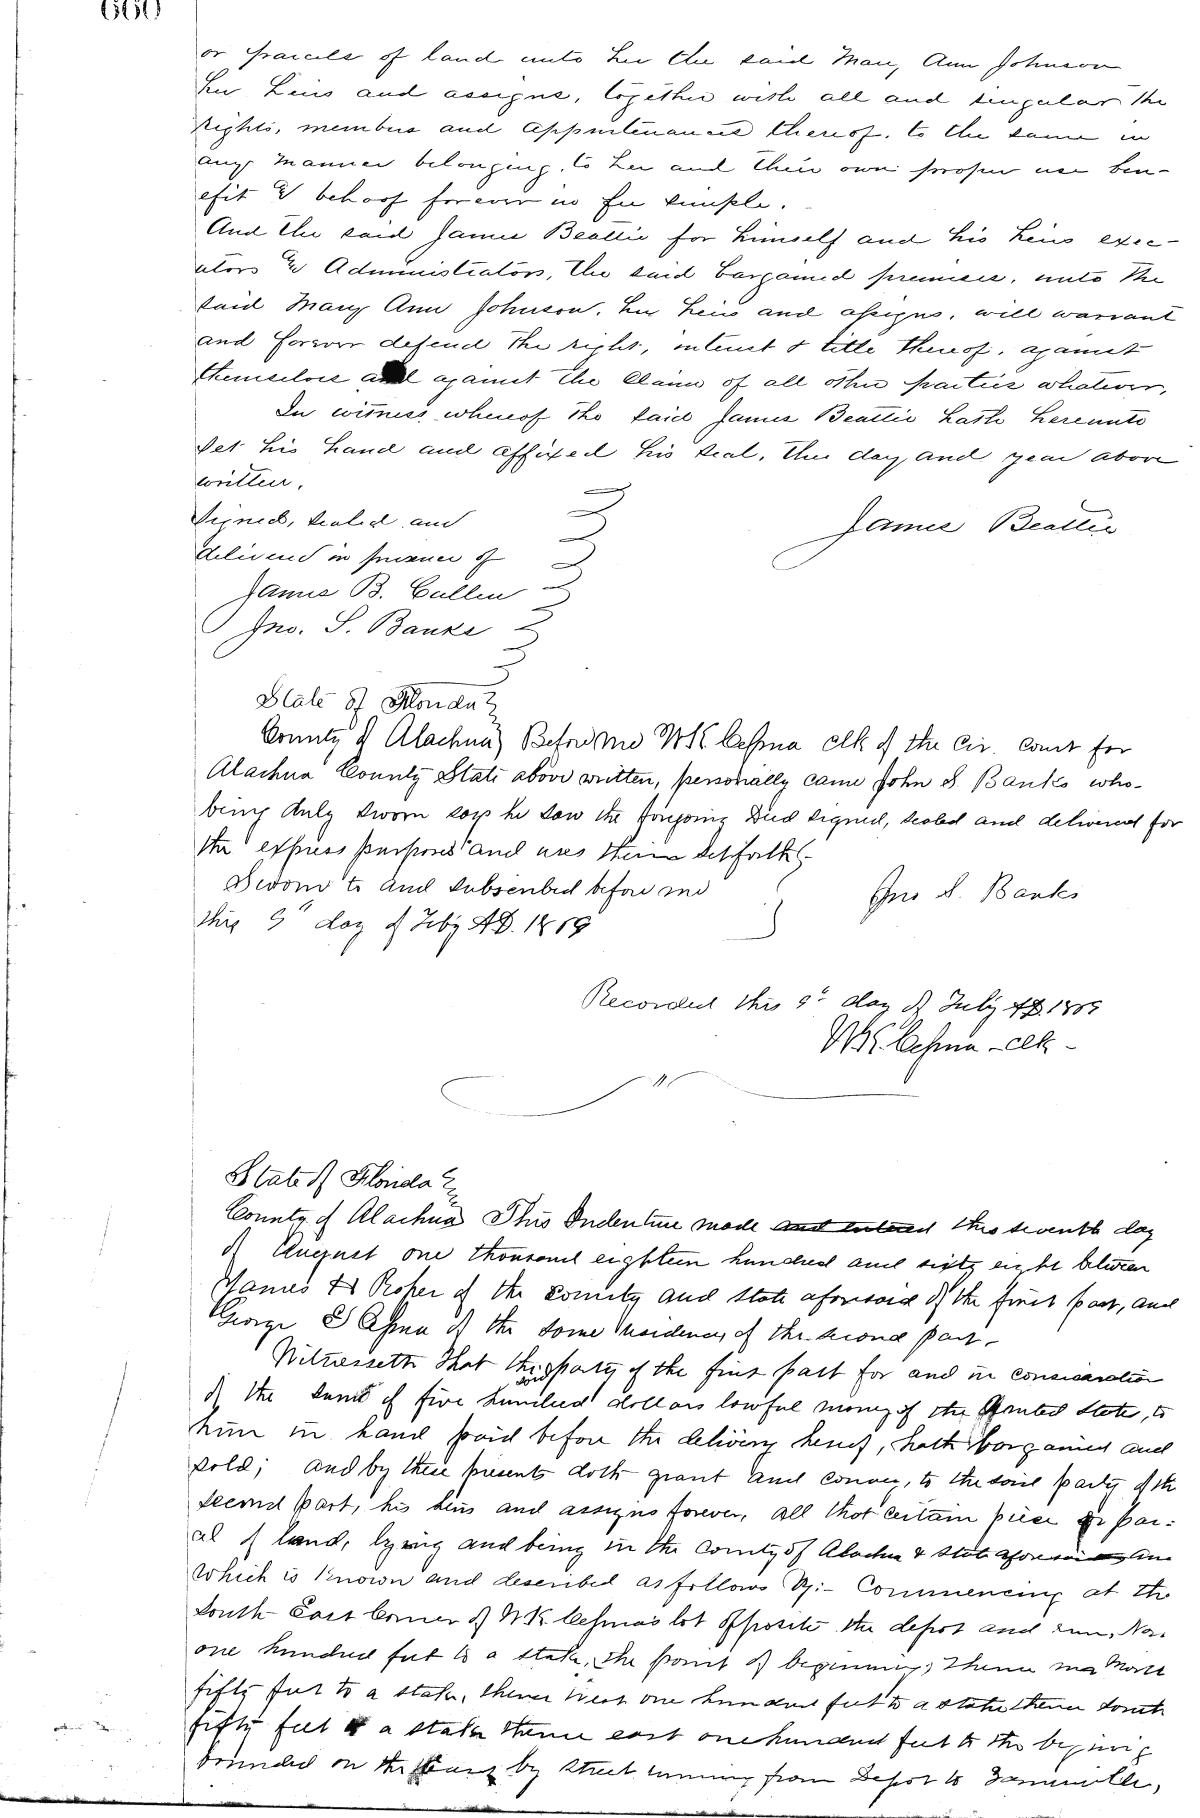 660
or parcels of land unto her the said Mary Ann Johnson
her heirs and assigns, together with all and singular the
rights, members and appurtenances thereof, to the same in
any manner belonging, to her and their own proper use ben-
efit & behoof forever in fee simple.
And the said James Beattie for himself and his heirs exec-
utors & Administrators, the said bargained premises, unto the
said Mary Ann Johnson, her heirs and assigns, will warrant
and forever defend the right, interest & title thereof, against
themselves and against the claim of all other parties whatever,
In witness whereof the said James Beattie hath hereunto
set his hand and affixed his seal, the day and year above
written.
Signed, sealed and
delivered in presence of
James Beattie
James B. Cullen
Jno. S. Banks
State of Florida
County of Alachua Before me WK Cessna clk of the Cir. Court for
Alachua County State above written, personally came John S. Banks who
being duly sworn says he saw the forgoing Deed signed, sealed and delivered for
the express purposes and uses therein set forth
Sworn to and subscribed before me
Jno S. Banks
this 9" day of Feby A.D. 1869
Recorded this 9" day of July AD. 1869
WK. Cessna - clk -
State of Florida
County of Alachua This Indenture made and entered this seventh day
of August one thousand eighteen hundred and sixty eight between
James H Roper of the County and State aforesaid of the first part, and
George Cessna of the same residence, of the second part -
Witnesseth That the said party of the first part for and in consideration
of the sum of five hundred dollars lawful money of the United States, to
him in hand paid before the delivery hereof, hath bargained and
sold; and by these presents doth grant and convey, to the said party of the
second part, his heirs and assigns forever, all that certain piece or par-
cel of land, lying and being in the County of Alachua & State aforesaid and
which is known and described as follows Viz:- Commencing at the
South East Corner of WK Cessna's lot opposite the depot and run, Nor.
one hundred feet to a stake, the point of beginning; thence run North
fifty feet to a stake, thence West one hundred feet to a stake thence South
fifty feet to a stake thence east one hundred feet to the begining
bounded on the East by Street running from Depot to Gainesville,